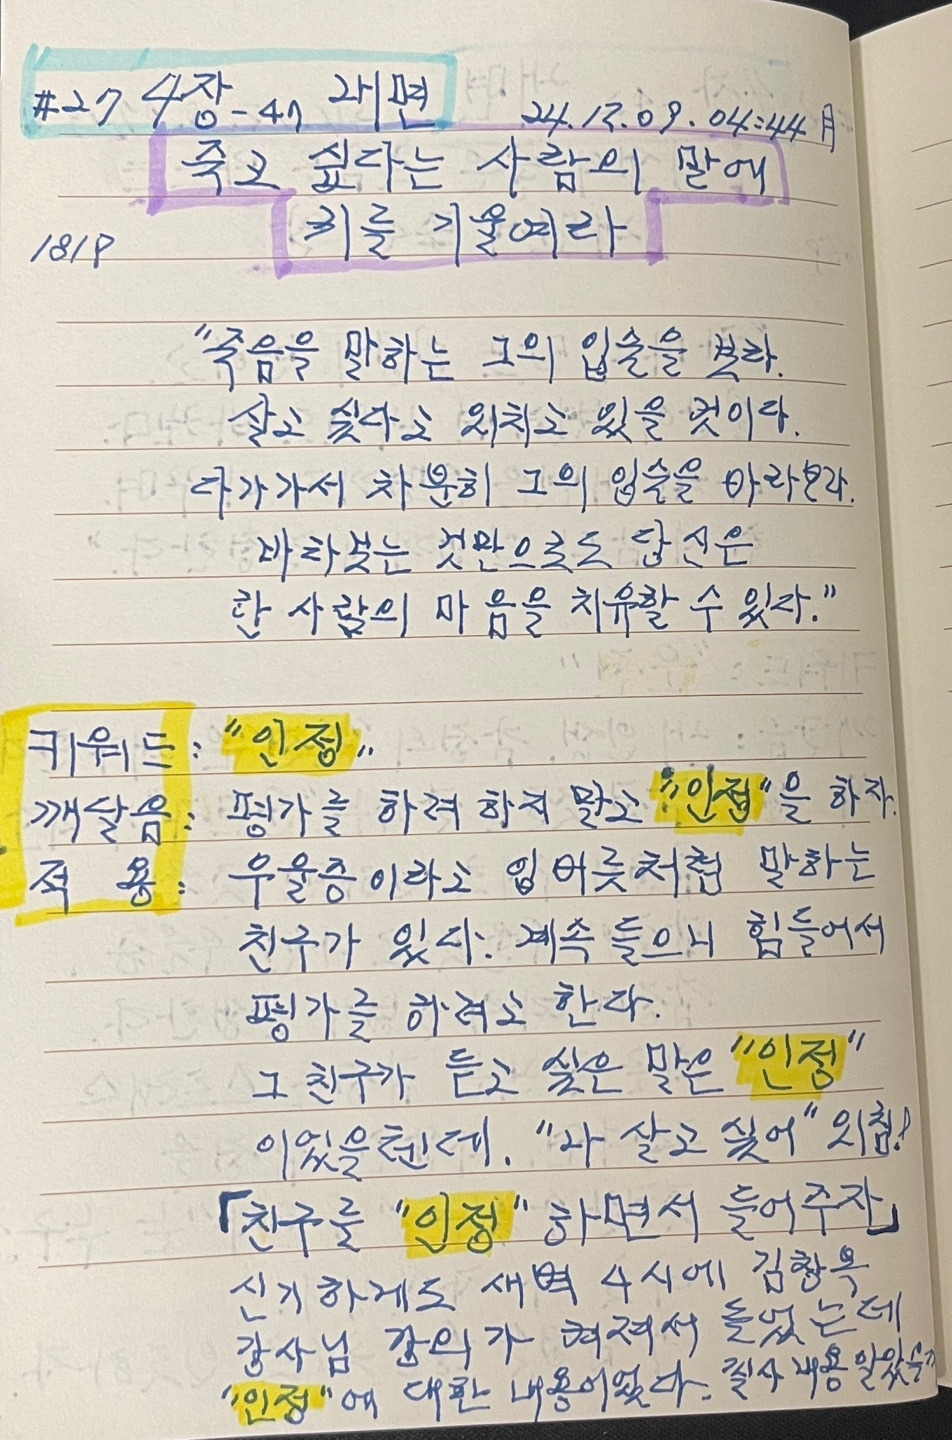 #27 4장-47 내면
24.12.09.04:44 月
죽고 싶다는 사람의 말에
귀를 기울여라
181P
"죽음을 말하는 그의 입술을 보라.
살고 싶다고 외치고 있을 것이다.
다가가서 차분히 그의 입술을 바라보라.
바라보는 것만으로도 당신은
한 사람의 마음을 치유할 수 있다."
키워드: "인정"
깨달음: 평가를 하려 하지 말고 "인정"을 하자.
적 용: 우울증이라고 입버릇처럼 말하는
친구가 있다. 계속 들으니 힘들어서
평가를 하려고 한다.
그 친구가 듣고 싶은 말은 "인정"
이었을텐데. "나 살고 싶어" 외침!
「친구를 "인정" 하면서 들어주자」
신기하게도 새벽 4시에 김창옥
강사님 강의가 켜져서 들었는데
"인정"에 대한 내용이었다. 필사 내용